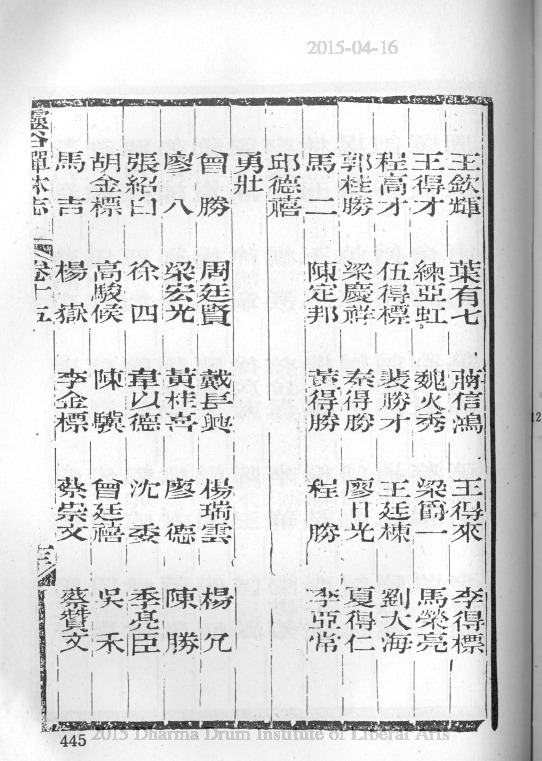 2015-04-16
王欽輝 葉有七 蔣信鴻 王得來 李得標
王得才 練亞虹 魏火秀 梁爵一 馬榮亮
程高才 伍得標 裴勝才 王廷棟 劉大海
郭桂勝 梁慶祥 秦得勝 廖日光 夏得仁
馬二 陳定邦 黃得勝 程勝 李亞常
邱德禧
勇壯
曾勝 周廷賢 戴長興 楊瑞雲 楊兄
廖八 梁宏光 黃桂喜 廖德 陳勝
張紹白 徐四 韋以德 沈委 季亮臣
胡金標 高駿候 陳驥 曾廷禧 吳禾
馬吉 楊嶽 李金標 蔡崇文 蔡贊文
靈谷禪林志 卷十五 十三
445
2015 Dharma Drum Institute of Liberal Arts
12